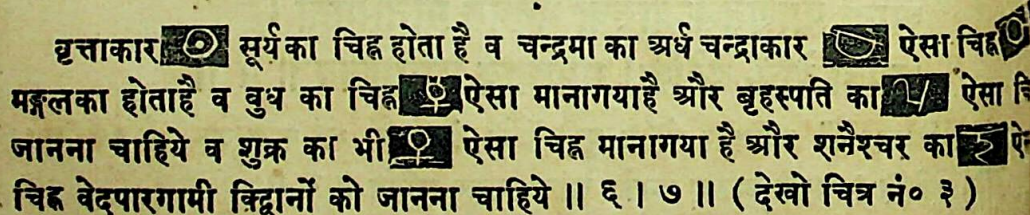 वृत्ताकार सूर्यका चिह्न होता है व चन्द्रमा का अर्ध चन्द्राकार ऐसा चिह्न
मङ्गलका होताहै व बुध का चिह्न ऐसा मानागयाहै और बृहस्पति का ऐसा
जानना चाहिये व शुक्र का भी ऐसा चिह्न मानागया है और शनैश्चर का
चिह्न वेदपारगामी विद्वानों को जानना चाहिये ॥ ६ । ७ ॥ ( देखो चित्र नं० ३ )